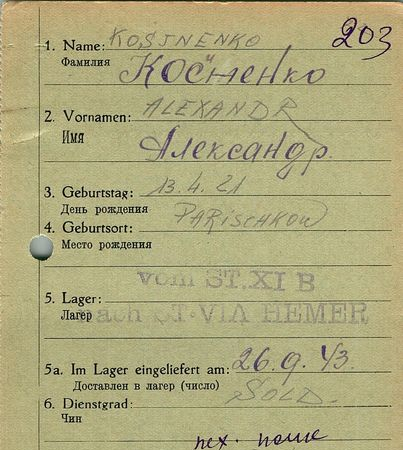 203
1. Name: KOSTNENKO
Фамилия
Костненко
2. Vornamen: ALEXANDR
Имя
Александр.
3. Geburtstag: 13.4.21
День рождения
4. Geburtsort: PARISCHKOW
Место рождения
vom ST.XI B
5. Lager:
Лагер
nach ST. VIA HEMER
5a. Im Lager eingeliefert am: 26.9.43
Доставлен в лагер (число)
6. Dienstgrad: SOLD.
Чин